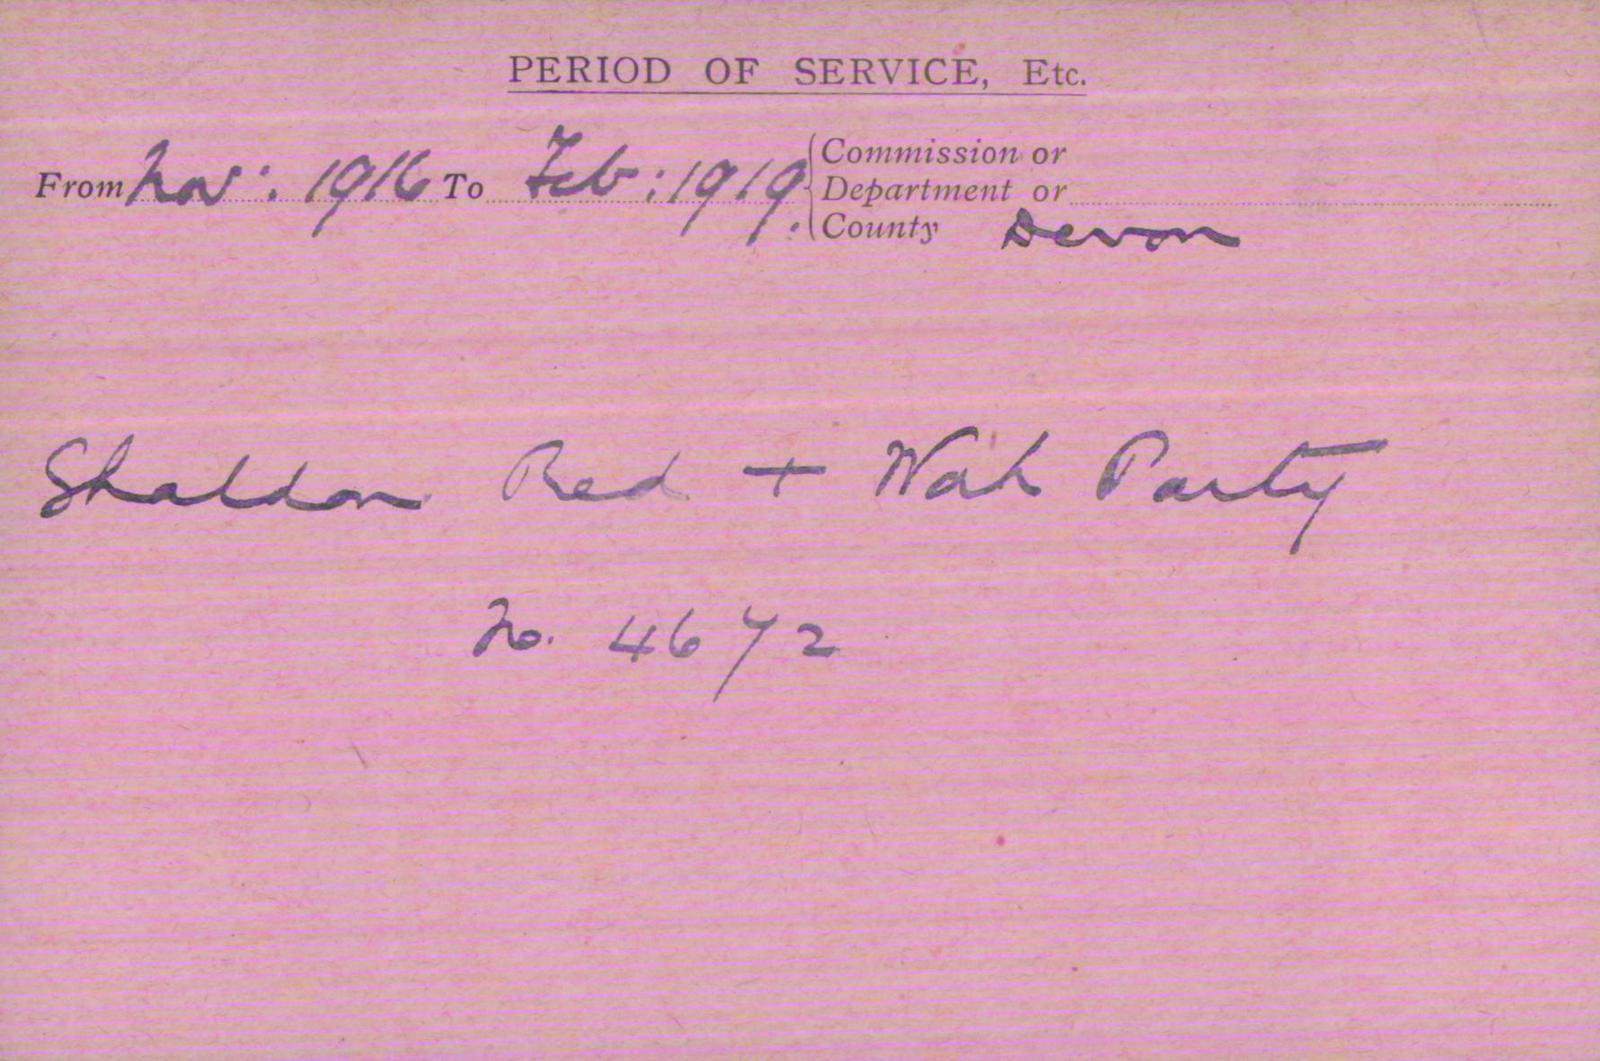 PERIOD OF SERVICE, Etc.
From Nov: 1916 To Feb: 1919. Commission or
Department or
County Devon
Shaldon Red + Work Party
No. 4672